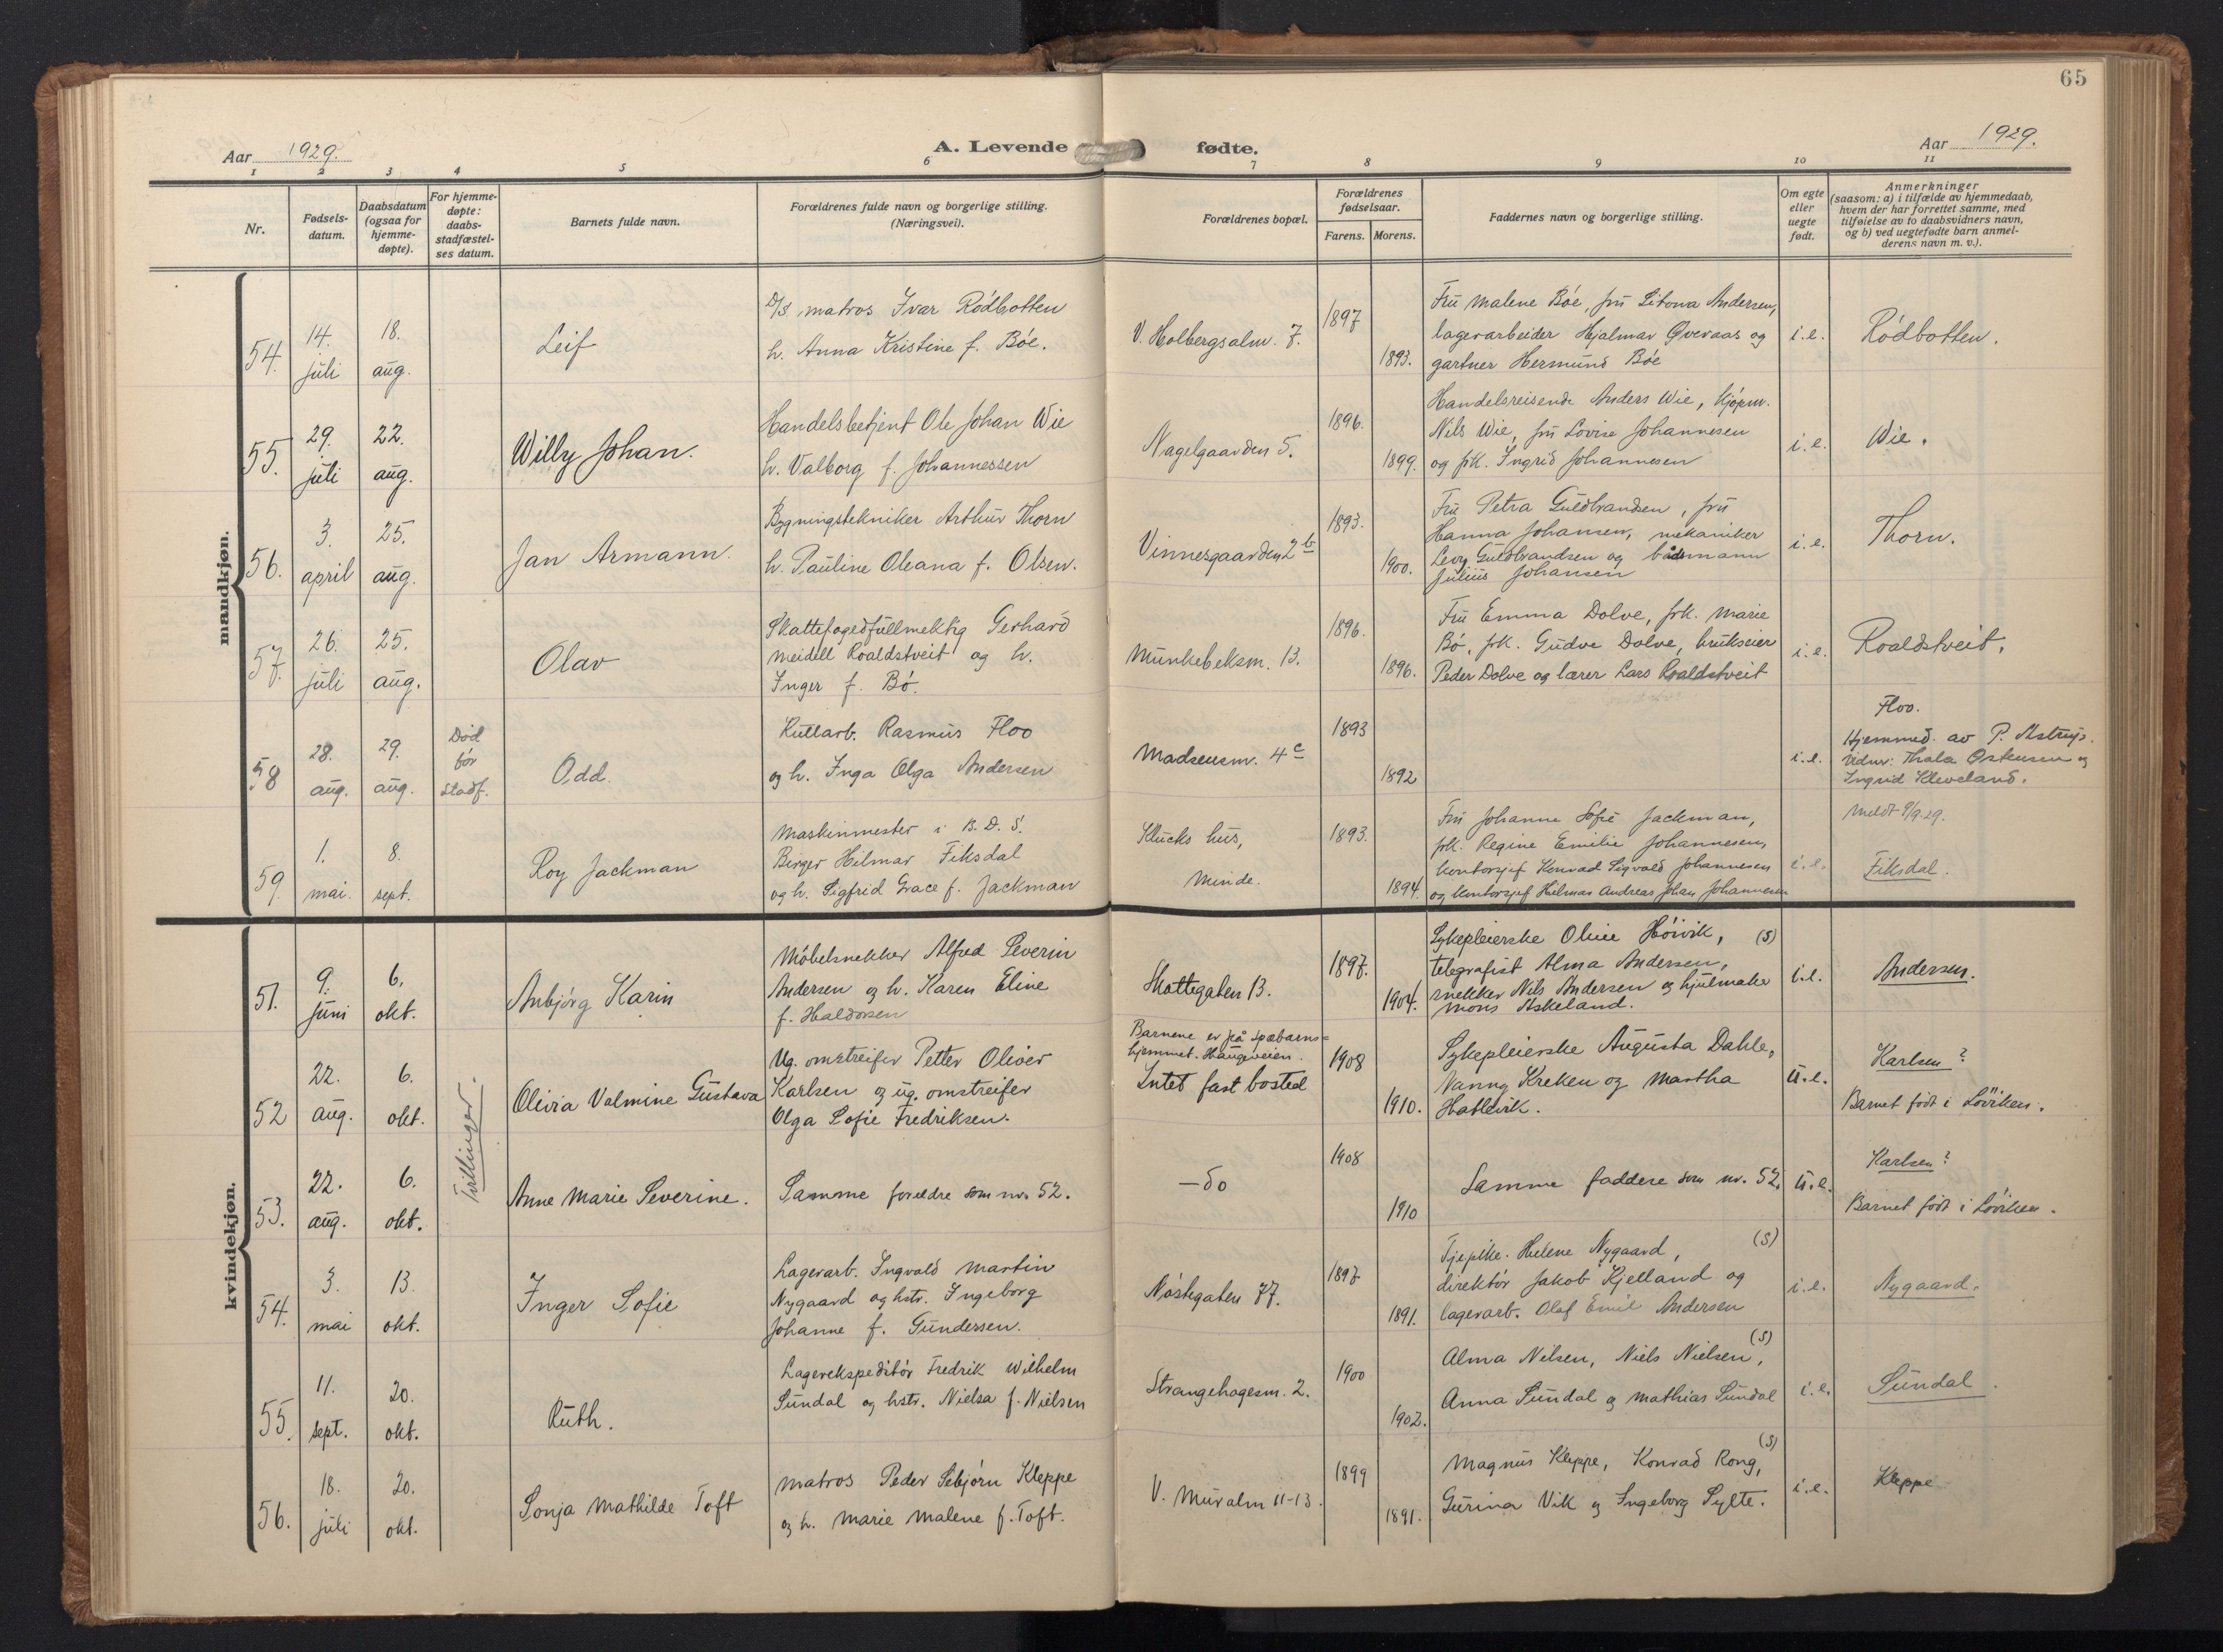 65
Aar 1929.
A. Levende fødte.
Aar 1929.
1 2 3 4 5 6 7 8 9 10 11
Nr.
Fødsels-
datum.
Daabsdatum
(ogsaa for
hjemme-
døpte).
For hjemme-
døpte:
daabs-
stadfæstel-
ses datum.
Barnets fulde navn.
Forældrenes fulde navn og borgerlige stilling.
(Næringsvei).
Forældrenes bopæl.
Forældrenes
fødselsaar.
Farens. Morens.
Faddernes navn og borgerlige stilling.
Om egte
eller
uegte
født.
Anmerkninger
(saasom: a) i tilfælde av hjemmedaab,
hvem der har forrettet samme, med
tilføielse av to daabsvidners navn,
og b) ved uegtefødte barn anmel-
derens navn m. v.).
mandkjøn.
54.
14.
juli
18.
aug.
Leif
D/S matros Ivar Rödbotten
h. Anna Kristine f. Böe.
V. Holbergsalm. 7.
1897
1893.
Fru Malene Böe, fru Andersen,
lagerarbeider Hjalmar Øveraas og
gartner Hermund Böe
i.e.
Rödbotten.
55.
29.
juli
22.
aug.
Willy Johan.
Handelsbetjent Ole Johan Wie
h. Valborg f. Johannessen
Nagelgaarden 5.
1896.
1899.
Handelsreisende Anders Wie, kjöpm.
Nils Wie, fru Lovise Johannesen
og frk. Ingrid Johannesen
i.e.
Wie.
56.
3.
april
25.
aug.
Jan Armann.
Bygningstekniker Arthur Thorn
h. Pauline Oleana f. Olsen.
Vinnesgaarden 2b
1893.
1900.
Fru Petra Guldbrandsen, fru
Hanna Johansen, mekaniker
Georg Guldbrandsen og bådsmann
Julius Johansen
i.e.
Thorn.
57.
26.
juli
25.
aug.
Olav
Skattefogedfullmektig Gerhard
Meidell Roaldstveit og h.
Inger f. Bö.
Munkebeksm. 13.
1896.
1896.
Fru Emma Dolve, frk. Marie
Bö, frk. Gudve Dolve, brukseier
Peder Dolve og lærer Lars Roaldstveit
i.e.
Roaldstveit.
58
28.
aug.
29.
aug.
Död
för
stadf.
Odd.
Kullarb. Rasmus Floo
og h. Inga Olga Andersen
Madsensm. 4c
1893
1892
i.e.
Floo.
Hjemmed. av P. Astrup.
Vidner: Thala Ostensen og
Ingrid Kleveland.
Meldt 9/9.29.
59.
1.
mai.
8.
sept.
Roy Jackman
Maskinmester i B.D.S.
Birger Hilmar Fiksdal
og h. Sigfrid Grace f. Jackman
Klucks hus,
Minde.
1893.
1894.
Fru Johanne Sofie Jackman,
frk. Regine Emilie Johannesen,
kontorsjef Konrad Sigvald Johannesen
og kontorsjef Hilmar Andreas Johan Johannesen
i.e.
Fiksdal.
kvindekjøn.
51.
9.
juni
6.
okt.
Anbjörg Karin
Möbelsnekker Alfred Severin
Andersen og h. Karen Eline
f. Haldorsen
Skottegaten 13.
1897.
1904.
Sykepleierske Oline Höivik, (S)
telegrafist Alma Andersen,
snekker Nils Andersen og hjulmaker
Mons Askeland.
i.e.
Andersen.
52
22.
aug.
6.
okt.
Tvillinger.
Olivia Valmine Gustava
Ug. omstreifer Petter Oliver
Karlsen og ug. omstreifer
Olga Sofie Fredriksen.
Barnene er på spæbarns=
hjemmet. Haugeveien.
Intet fast bosted
1908
1910.
Sykepleierske Augusta Dahle,
Nanny Kreken og Martha
Hatlevik.
u.e.
Karlsen?
Barnet födt i Löviken.
53.
22.
aug.
6.
okt.
Anne Marie Severine.
Samme foreldre som nr. 52.
— do
1908
1910
Samme faddere som nr. 52.
u.e.
Karlsen?
Barnet födt i Löviken.
54.
3.
mai
13.
okt.
Inger Sofie
Lagerarb. Ingvald Martin
Nygaard og hstr. Ingeborg
Johanne f. Gundersen.
Nöstegaten 77.
1897
1891.
Tjepike. Helene Nygaard, (S)
direktör Jakob Kjelland og
lagerarb. Olaf Emil Andersen
i.e.
Nygaard.
55.
11.
sept.
20.
okt.
Ruth.
Lagerekspeditör Fredrik Wilhelm
Sundal og hstr. Nielsa f. Nielsen
Strangehagesm. 2.
1900
1902.
Alma Nilsen, Niels Nielsen, (S)
Anna Sundal og Mathias Sundal
i.e.
Sundal.
56.
18.
juli
20.
okt.
Sonja Mathilde Toft
Matros Peder Sebjörn Kleppe
og h. Marie Malene f. Toft.
V. Muralm 11-13.
1899
1891.
Magnus Kleppe, Konrad Rong, (S)
Gurina Vik og Ingeborg Sylte.
i.e.
Kleppe